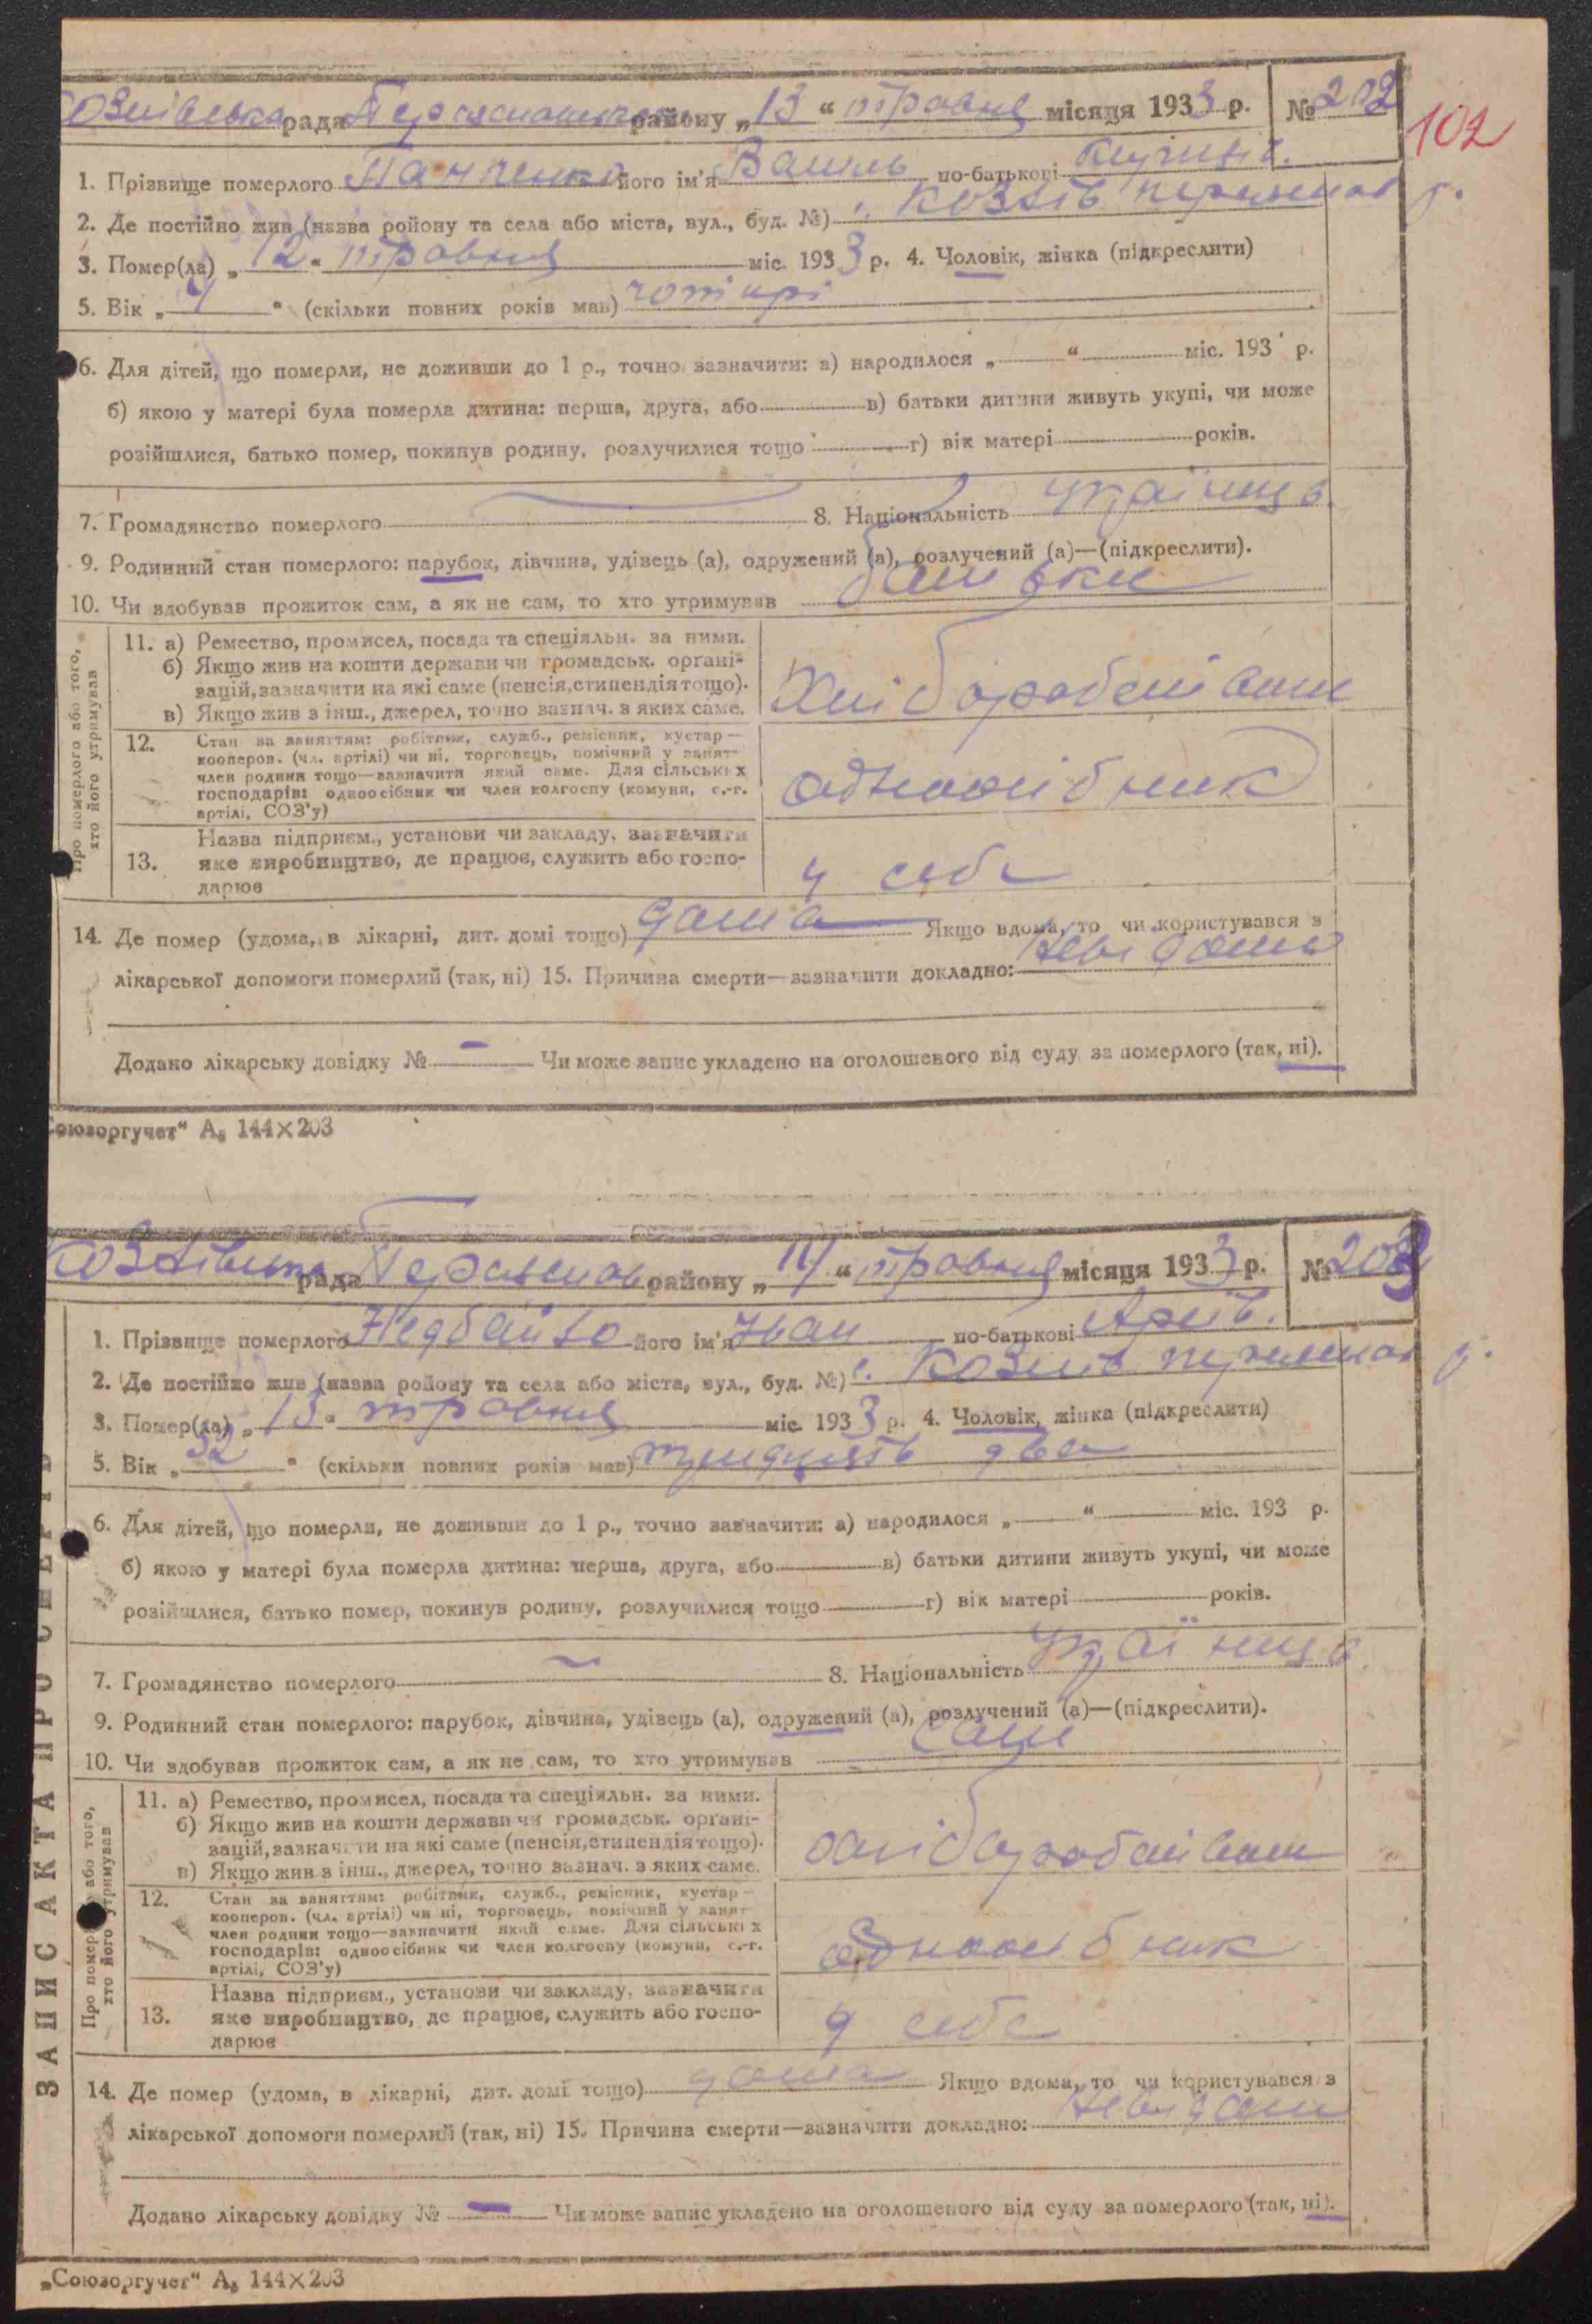 рада Переяславського району „13“ травня місяця 1933 р. № 202
102
1. Прізвище померлого Панченко його ім'я Василь по-батькові
2. Де постійно жив (назва ройону та села або міста, вул., буд. №) с. Козлів переяслав р.
3. Помер(ла) „12“ травня міс. 1933 р. 4. Чоловік, жінка (підкреслити)
5. Вік „4“ (скільки повних років мав) чотирі
6. Для дітей, що померли, не доживши до 1 р., точно зазначити: а) народилося „ “ міс. 193 р.
б) якою у матері була померла дитина: перша, друга, або в) батьки дитини живуть укупі, чи може
розійшлися, батько помер, покинув родину, розлучилися тощо г) вік матері років.
7. Громадянство померлого 8. Національність українець
9. Родинний стан померлого: парубок, дівчина, удівець (а), одружений (а), розлучений (а)—(підкреслити).
10. Чи здобував прожиток сам, а як не сам, то хто утримував батьки
Про померлого або того, хто його утримував
11. а) Ремество, промисел, посада та спеціяльн. за ними.
б) Якщо жив на кошти держави чи громадськ. органі-
зацій, зазначити на які саме (пенсія, стипендія тощо).
в) Якщо жив з інш., джерел, точно зазнач. з яких саме.
Хліборобством
12. Стан за заняттям: робітник, служб., ремісник, кустар—
кооперов. (чл. артілі) чи ні, торговець, помічний у занят-
член родини тощо—зазначити який саме. Для сільських
господарів: одноосібник чи член колгоспу (комуни, с.-г.
артілі, СОЗ'у)
одноосібник
Назва підприєм., установи чи закладу, зазначити
13. яке виробництво, де працює, служить або госпо-
дарює
у себе
14. Де помер (удома, в лікарні, дит. домі тощо) дома Якщо вдома, то чи користувався з
лікарської допомоги померлий (так, ні) 15. Причина смерти—зазначити докладно: невідомо
Додано лікарську довідку № — Чи може запис укладено на оголошеного від суду за померлого (так, ні).
Союзоргучет“ А₅ 144×203
Козлівська рада Переяслав району „14“ травня місяця 1933 р. № 203
1. Прізвище померлого Недбайло його ім'я Іван по-батькові
2. Де постійно жив (назва ройону та села або міста, вул., буд. №) с. Козлів переяслав р.
3. Помер(ла) „13“ травня міс. 1933 р. 4. Чоловік, жінка (підкреслити)
5. Вік „32“ (скільки повних років мав) тридцять два
6. Для дітей, що померли, не доживши до 1 р., точно зазначити: а) народилося „ “ міс. 193 р.
б) якою у матері була померла дитина: перша, друга, або в) батьки дитини живуть укупі, чи може
розійшлися, батько помер, покинув родину, розлучилися тощо г) вік матері років.
7. Громадянство померлого 8. Національність українець
9. Родинний стан померлого: парубок, дівчина, удівець (а), одружений (а), розлучений (а)—(підкреслити).
10. Чи здобував прожиток сам, а як не сам, то хто утримував сам
ЗАПИС АКТА ПРО СМЕРТЬ
Про померлого або того, хто його утримував
11. а) Ремество, промисел, посада та спеціяльн. за ними.
б) Якщо жив на кошти держави чи громадськ. органі-
зацій, зазначити на які саме (пенсія, стипендія тощо).
в) Якщо жив з інш., джерел, точно зазнач. з яких саме.
хліборобством
12. Стан за заняттям: робітник, служб., ремісник, кустар—
кооперов. (чл. артілі) чи ні, торговець, помічний у занят-
член родини тощо—зазначити який саме. Для сільських
господарів: одноосібник чи член колгоспу (комуни, с.-г.
артілі, СОЗ'у)
одноосібник
Назва підприєм., установи чи закладу, зазначити
13. яке виробництво, де працює, служить або госпо-
дарює
у себе
14. Де помер (удома, в лікарні, дит. домі тощо) дома Якщо вдома, то чи користувався з
лікарської допомоги померлий (так, ні) 15. Причина смерти—зазначити докладно: невідомо
Додано лікарську довідку № — Чи може запис укладено на оголошеного від суду за померлого (так, ні).
„Союзоргучет“ А₅ 144×203